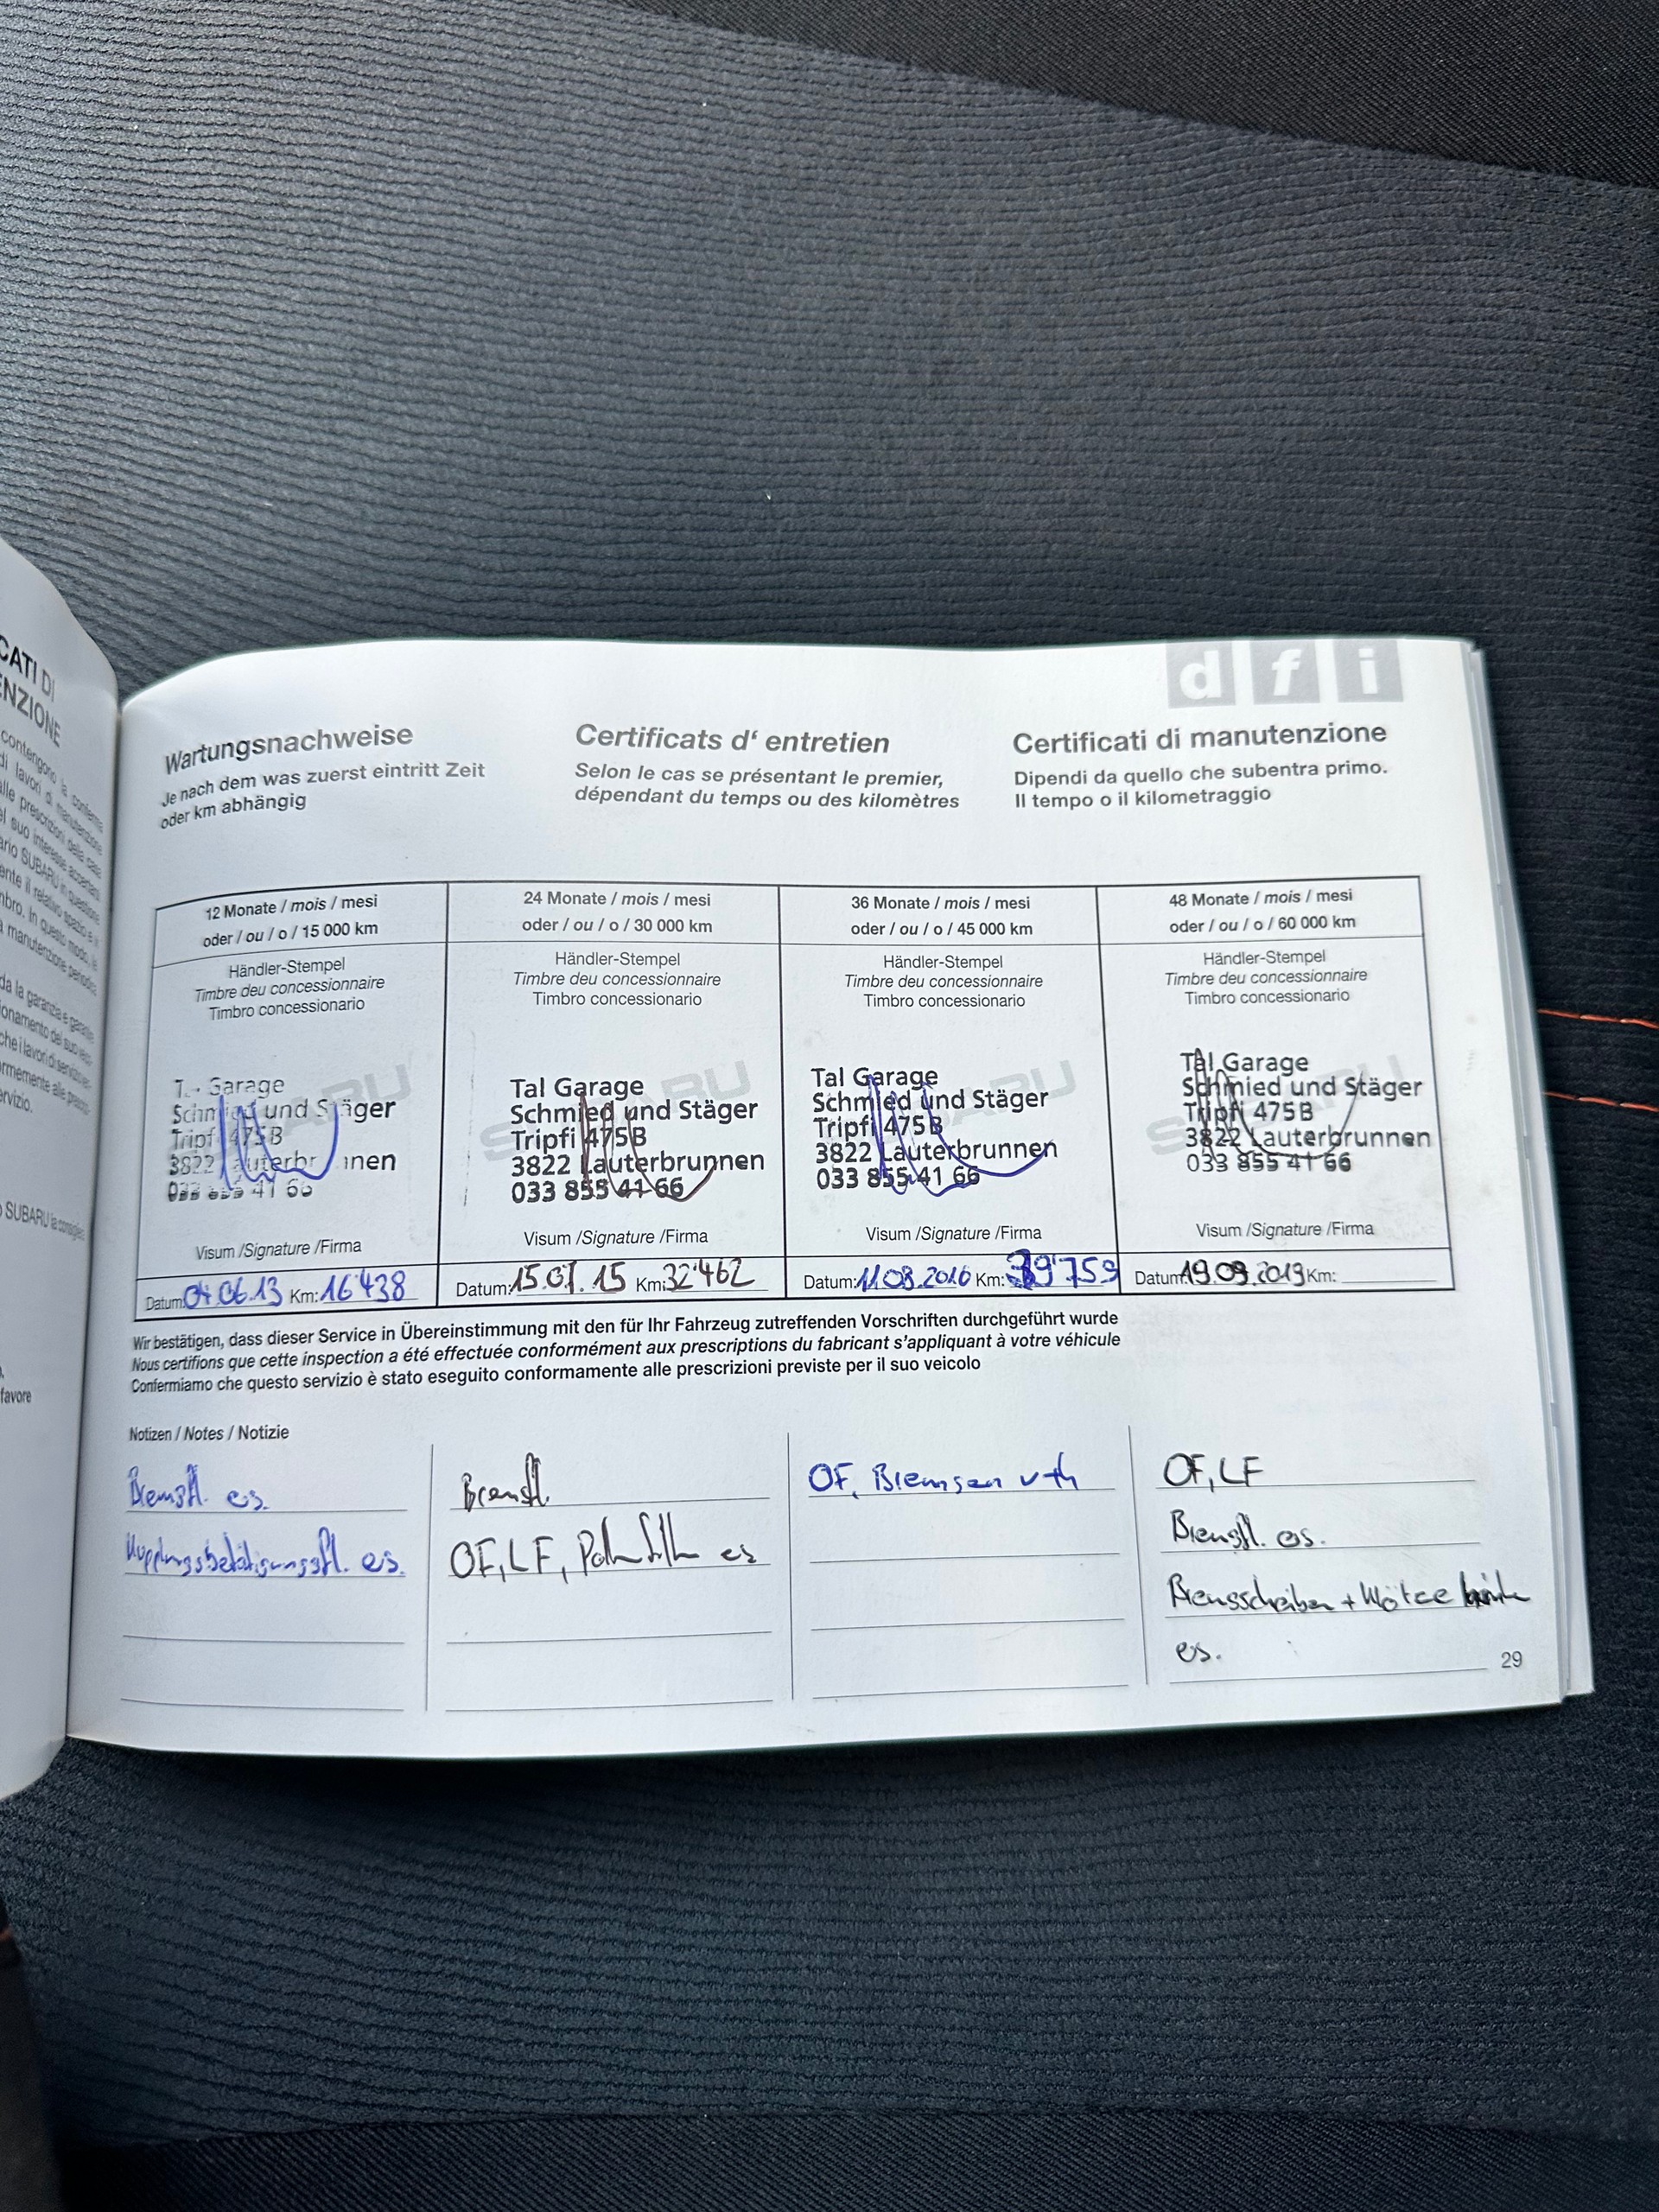 CATI DI
ENZIONE
contengono la conferma
di lavori di manutenzione
alle prescrizioni della casa
l suo interesse accertarsi
ario SUBARU in questione
ente il relativo spazio e
mbro. In questo modo, le
manutenzione periodica
da la garanzia e garante
che i lavori di
ormemente alle
ervizio.
SUBARU la consiglia
favore
d f i
Wartungsnachweise
Je nach dem was zuerst eintritt Zeit
oder km abhängig
Certificats d' entretien
Selon le cas se présentant le premier,
dépendant du temps ou des kilomètres
Certificati di manutenzione
Dipendi da quello che subentra primo.
Il tempo o il kilometraggio
12 Monate / mois / mesi
oder / ou / o / 15 000 km
Händler-Stempel
Timbre deu concessionnaire
Timbro concessionario
SUBARU
Schmied und Stäger
Tripfi 475B
3822 Lauterbrunnen
033 855 41 66
Visum /Signature /Firma
Datum: 04.06.13 Km: 16'438
24 Monate / mois / mesi
oder / ou / o / 30 000 km
Händler-Stempel
Timbre deu concessionnaire
Timbro concessionario
SUBARU
Tal Garage
Schmied und Stäger
Tripfi 475B
3822 Lauterbrunnen
033 855 41 66
Visum /Signature /Firma
Datum: 15.07.15 Km: 32'462
36 Monate / mois / mesi
oder / ou / o / 45 000 km
Händler-Stempel
Timbre deu concessionnaire
Timbro concessionario
SUBARU
Tal Garage
Schmied und Stäger
Tripfi 475B
3822 Lauterbrunnen
033 855 41 66
Visum /Signature /Firma
Datum: 11.08.2016 Km: 39'759
48 Monate / mois / mesi
oder / ou / o / 60 000 km
Händler-Stempel
Timbre deu concessionnaire
Timbro concessionario
SUBARU
Tal Garage
Schmied und Stäger
Tripfi 475B
3822 Lauterbrunnen
033 855 41 66
Visum /Signature /Firma
Datum: 19.09.2019 Km:
Wir bestätigen, dass dieser Service in Übereinstimmung mit den für Ihr Fahrzeug zutreffenden Vorschriften durchgeführt wurde
Nous certifions que cette inspection a été effectuée conformément aux prescriptions du fabricant s'appliquant à votre véhicule
Confermiamo che questo servizio è stato eseguito conformamente alle prescrizioni previste per il suo veicolo
Notizen / Notes / Notizie
Bremsfl. es.
Kupplungsbetätigungsfl. es.
Bremsfl.
OF, LF, Pollenfilter es
OF, Bremsen v+h
OF, LF
Bremsfl. es.
Bremsscheiben + Klötze
es.
29